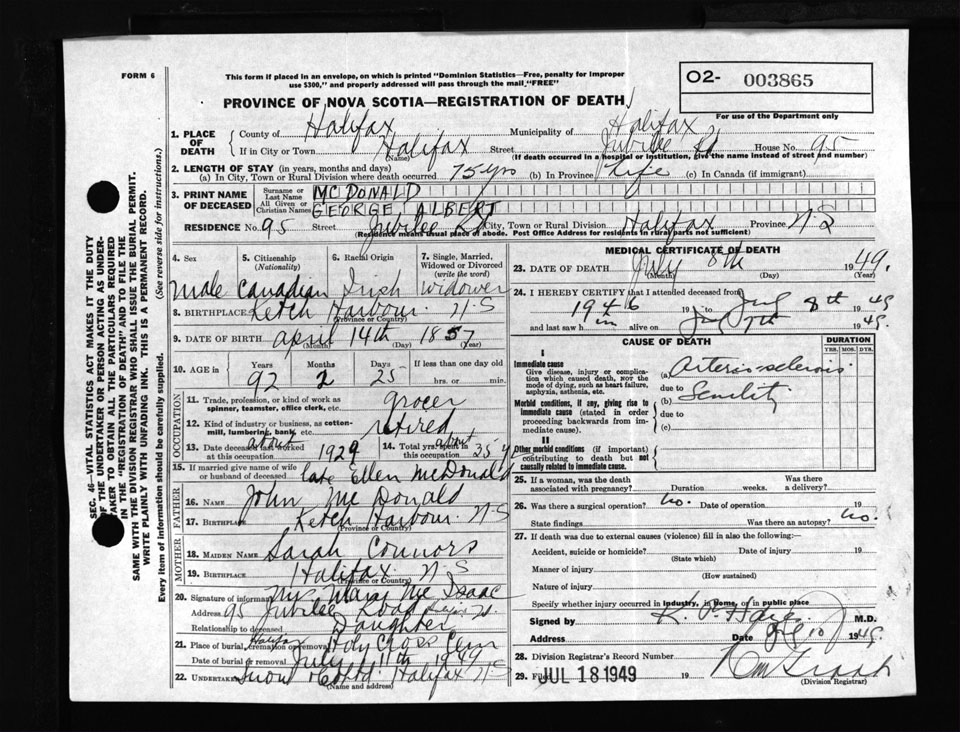 FORM 6
This form if placed in an envelope, on which is printed "Dominion Statistics—Free, penalty for improper
use $300," and properly addressed will pass through the mail "FREE"
O2- 003865
For use of the Department only
PROVINCE OF NOVA SCOTIA—REGISTRATION OF DEATH
1. PLACE OF DEATH
County of Halifax Municipality of Halifax
If in City or Town Halifax (Name) Street Jubilee Rd House No. 95
(If death occurred in a hospital or institution, give the name instead of street and number)
2. LENGTH OF STAY (in years, months and days)
(a) In City, Town or Rural Division where death occurred 75 yrs (b) In Province Life (c) In Canada (if immigrant)
3. PRINT NAME OF DECEASED
Surname or Last Name MCDONALD
All Given or Christian Names GEORGE, ALBERT
RESIDENCE No. 95 Street Jubilee Rd City, Town or Rural Division Halifax Province N.S
(Residence means usual place of abode. Post Office Address for residents in rural parts not sufficient)
4. Sex
5. Citizenship (Nationality)
6. Racial Origin
7. Single, Married, Widowed or Divorced (write the word)
male Canadian Irish Widower
8. BIRTHPLACE Ketch Harbour N.S
(Province or Country)
9. DATE OF BIRTH April 14th 1857
(Month) (Day) (Year)
10. AGE in Years Months Days If less than one day old
92 2 25 hrs. or min.
OCCUPATION
11. Trade, profession, or kind of work as spinner, teamster, office clerk, etc. grocer
12. Kind of industry or business, as cotton-mill, lumbering, bank, etc. retired
13. Date deceased last worked at this occupation about 1929
14. Total yrs. spent in this occupation about 35 yrs
15. If married give name of wife or husband of deceased late Ellen McDonald
FATHER
16. Name John Mc Donald
17. Birthplace Ketch Harbour N.S
(Province or Country)
MOTHER
18. MAIDEN NAME Sarah Connors
19. BIRTHPLACE Halifax N.S
(Province or Country)
20. Signature of informant Mrs Mary Mc Isaac
Address 95 Jubilee Road
Relationship to deceased Daughter
21. Place of burial, cremation or removal Halifax Holy Cross Cem
Date of burial or removal July 11th 1949
22. UNDERTAKER Snow Halifax N.S
(Name and address)
MEDICAL CERTIFICATE OF DEATH
23. DATE OF DEATH July 8th 1949.
(Month) (Day) (Year)
24. I HEREBY CERTIFY that I attended deceased from
1946 19 to July 8th 1949
and last saw him alive on July 7th 1949.
CAUSE OF DEATH
DURATION
YRS. MOS. DYS.
I
Immediate cause
Give disease, injury or complication which caused death, not the mode of dying, such as heart failure, asphyxia, asthenia, etc.
(a) Arterio-sclerosis.
due to
Morbid conditions, if any, giving rise to immediate cause (stated in order proceeding backwards from immediate cause).
(b) Senility
due to
(c)
II
Other morbid conditions (if important) contributing to death but not causally related to immediate cause.
25. If a woman, was the death associated with pregnancy? Duration weeks. Was there a delivery?
26. Was there a surgical operation? No. Date of operation 19
State findings Was there an autopsy? No.
27. If death was due to external causes (violence) fill in also the following:—
Accident, suicide or homicide? Date of injury 19
(State which)
Manner of injury
(How sustained)
Nature of injury
Specify whether injury occurred in industry, in home, or in public place
Signed by M.D.
Address Date 10 1949.
28. Division Registrar's Record Number
29. Filed JUL 18 1949 19
(Division Registrar)
SEC. 46—VITAL STATISTICS ACT MAKES IT THE DUTY
OF THE UNDERTAKER OR PERSON ACTING AS UNDER-
TAKER TO OBTAIN ALL THE PARTICULARS REQUIRED
IN THE "REGISTRATION OF DEATH" AND TO FILE THE
SAME WITH THE DIVISION REGISTRAR WHO SHALL ISSUE THE BURIAL PERMIT.
WRITE PLAINLY WITH UNFADING INK. THIS IS A PERMANENT RECORD.
Every item of information should be carefully supplied. (See reverse side for instructions.)